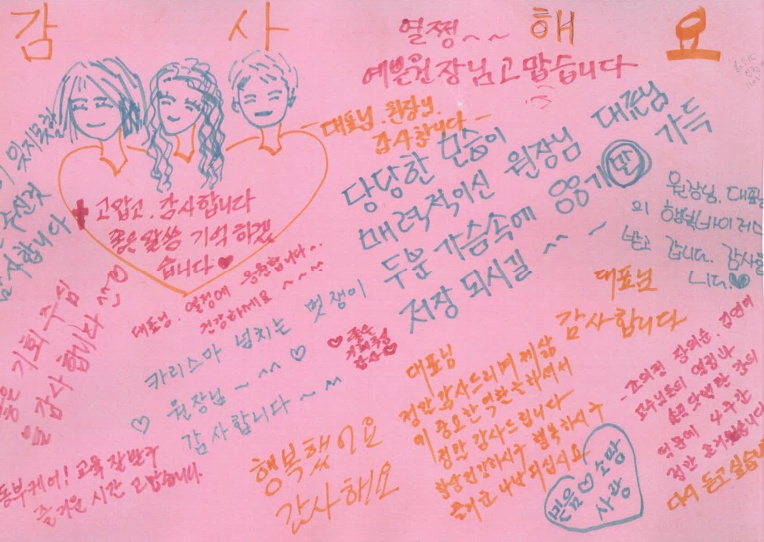 감사해요
열쩡~~
예쁜원장님고맙습니다
대표님.원장님.
감사합니다
당당한 모습이
매력적이신 원장님 대표님
두분 가슴속에 용기만 가득
저장 되시길 ^^~
고맙고.감사합니다
좋은 말씀 기억 하겠
습니다
대표님. 열정에 응원합니다..
건강하세요~~~
카리스마 넘치는 멋쟁이
원장님~^^
감사합니다~^^
원장님. 대표님
의 행복바이러스
받고 갑니다. 감사합
니다.
대표님
감사합니다
기회 주심
을 감사합니다
감사
대표님
정말 감사드리며 세상
중요한 역할을 하셔서
정말 감사드립니다
건강하시구 행복하시구
되십시요
행복했어요
감사해요
믿음 소망
사랑
동부케어! 교육 잘받구
즐거운 시간 고맙습니다
교수님들의 열정과
4주간
정말 즐거웠습니다
다시 듣고 싶습니다